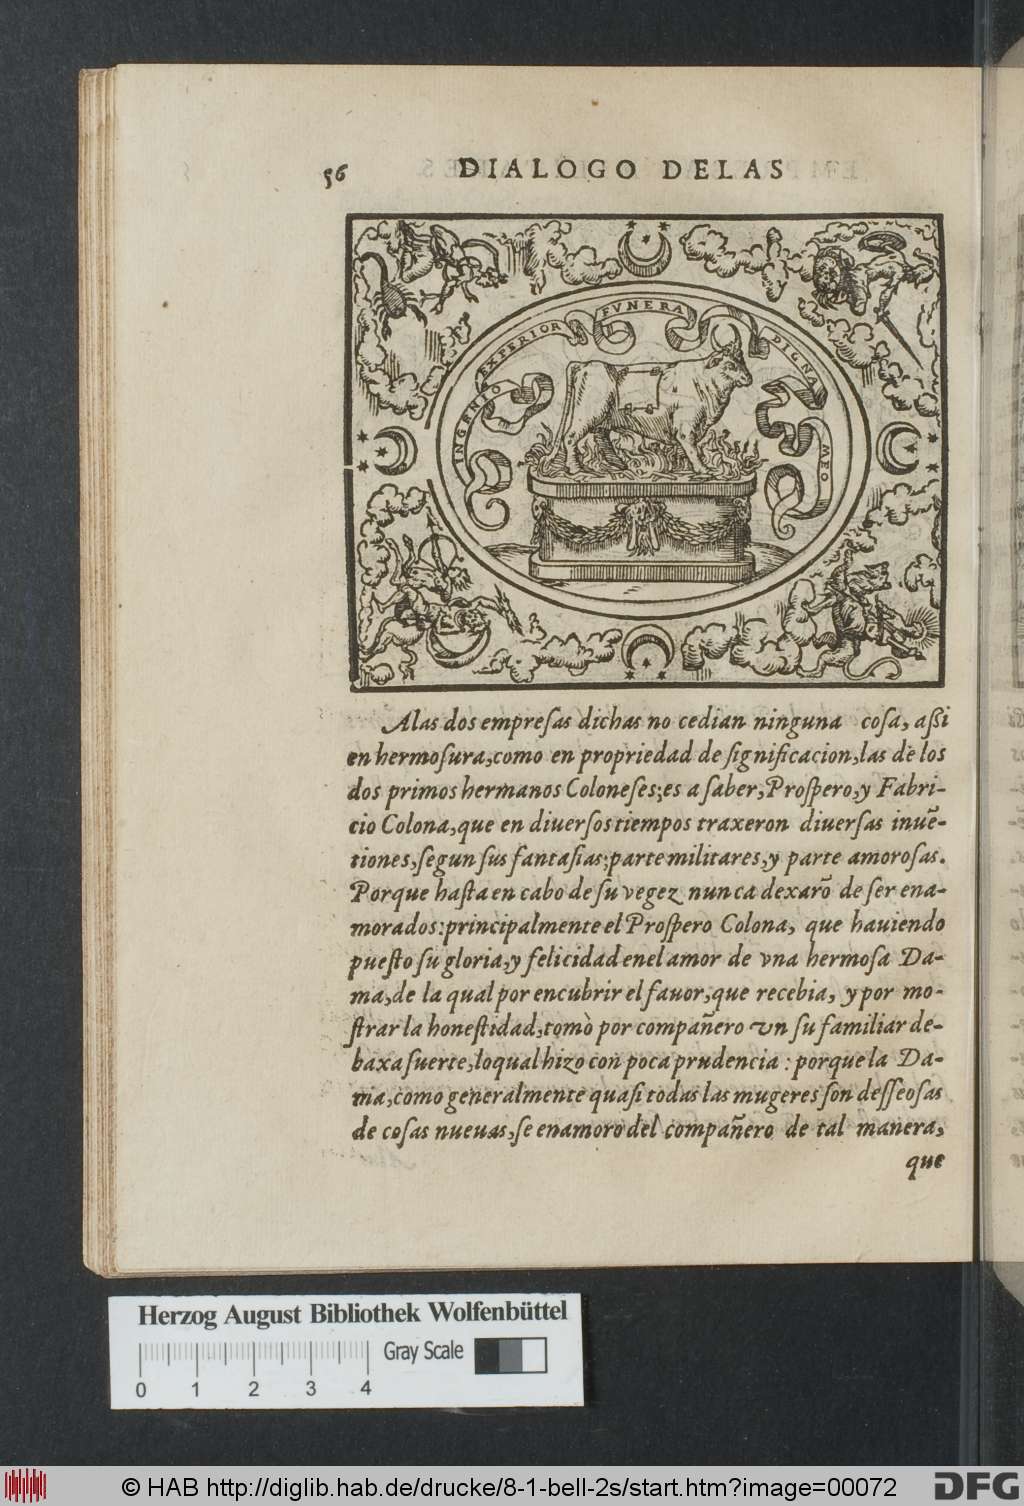 56 DIALOGO DELAS
INGENIO EXPERIOR FVNERA DIGNA MEO
Alas dos empreſas dichas no cedian ninguna coſa, aßi
en hermoſura, como en propriedad de ſignificacion, las de los
dos primos hermanos Coloneſes; es a ſaber, Proſpero, y Fabri-
cio Colona, que en diuerſos tiempos traxeron diuerſas inuẽ-
tiones, ſegun ſus fantaſias; parte militares, y parte amoroſas.
Porque haſta en cabo de ſu vegez nunca dexarõ de ſer ena-
morados: principalmente el Proſpero Colona, que hauiendo
pueſto ſu gloria, y felicidad enel amor de vna hermoſa Da-
ma, de la qual por encubrir el fauor, que recebia, y por mo-
ſtrar la honeſtidad, tomò por compañero vn ſu familiar de-
baxa ſuerte, lo qual hizo con poca prudencia: porque la Da-
ma, como generalmente quaſi todas las mugeres ſon deſſeoſas
de coſas nueuas, ſe enamoro del compañero de tal manera,
que
Herzog August Bibliothek Wolfenbüttel
Gray Scale
0 1 2 3 4
© HAB http://diglib.hab.de/drucke/8-1-bell-2s/start.htm?image=00072
DFG